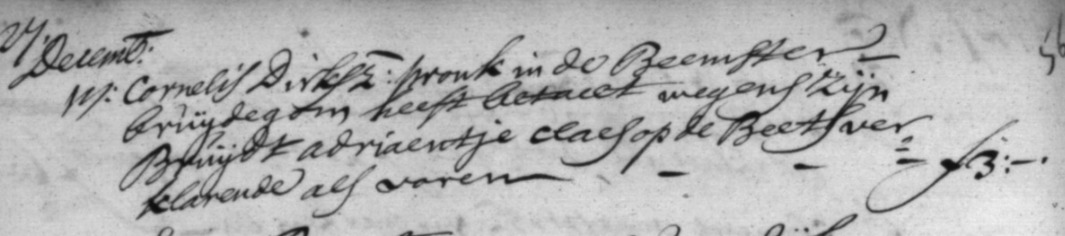 Decemb:
Cornelis Dirksz: pronk in de Beemster
bruijdegom heeft betaelt wegens zijn
Bruijdt adriaentje claes op de Beets ver
klarende als voren f3:-.